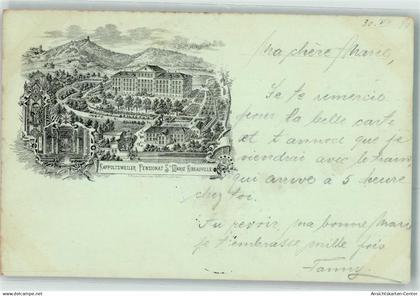 30.
Ma chère Marie,
Je te remercie
pour la belle carte
et t'annonce que je
viendrai avec le train
qui arrive à 5 heure
chez toi.
Au revoir ma bonne Marie
je t'embrasse mille fois
Fanny.
RAPPOLTSWEILER PENSIONAT Ste MARIE RIBEAUVILLÉ
Ansichtskarten-Center